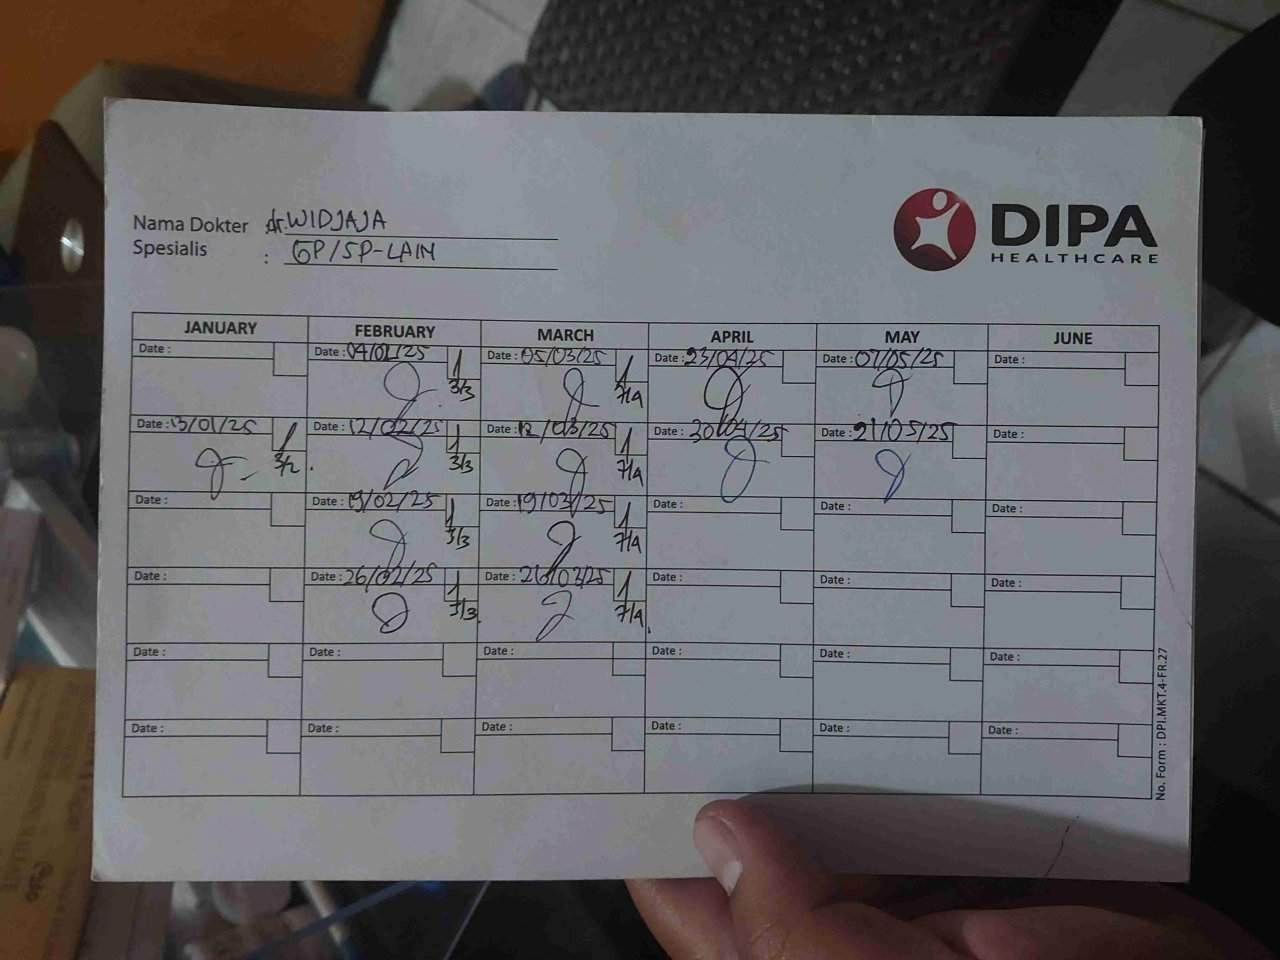 Nama Dokter dr. WIDJAJA
Spesialis : GP/SP-LAIN
DIPA
HEALTHCARE
JANUARY FEBRUARY MARCH APRIL MAY JUNE
Date : Date : 04/02/25 1 Date : 05/03/25 1 Date : 23/04/25 Date : 07/05/25 Date :
3/3 7/4
Date : 13/01/25 1 Date : 12/02/25 1 Date : 12/03/25 1 Date : 30/04/25 Date : 21/05/25 Date :
3/2 3/3 7/4
Date : Date : 19/02/25 1 Date : 19/03/25 1 Date : Date : Date :
3/3 7/4
Date : Date : 26/02/25 1 Date : 26/03/25 1 Date : Date : Date :
3/3 7/4
Date : Date : Date : Date : Date : Date :
Date : Date : Date : Date : Date : Date :
No. Form : DPI.MKT.4-FR.27